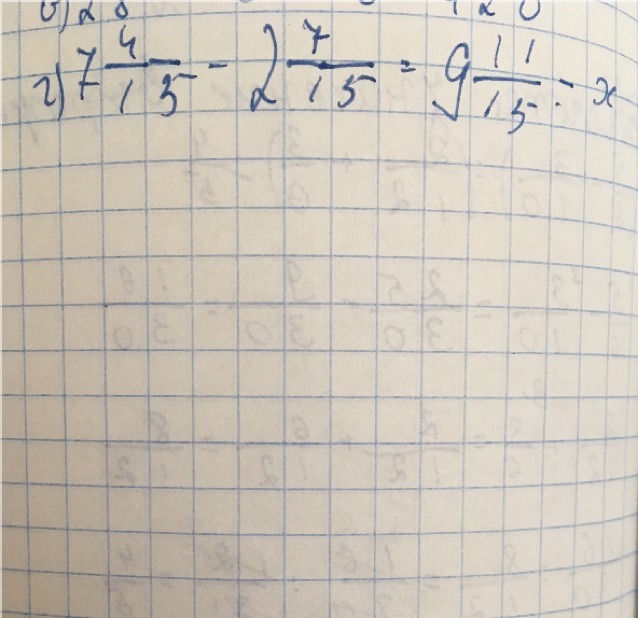 г) 7 4/15 - 2 7/15 = 9 11/15 - x